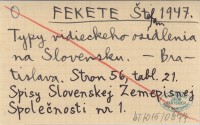 FEKETE Štefan 1947.
Typy vidieckeho osídlenia
na Slovensku. — Bra-
tislava. Stron 56, tabl. 21.
Spisy Slovenskej Zemepisnej
Společnosti nr 1.